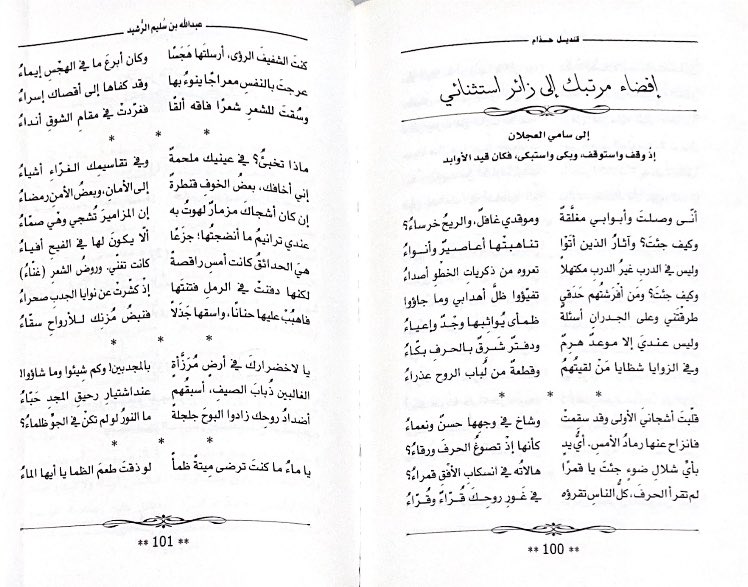 قنديل حذام
إفضاء مرتبك إلى زائر استثنائي
إلى سامي العجلان
إذْ وقف واستوقف، وبكى واستبكى، فكان قيد الأوابد
أنّى وصلتَ وأبوابي مغلّقةٌ وموقدي غافل، والريحُ خرساءُ؟
وكيف جئتَ؟ وآثارُ الذين أتَوْا تناهبتْها أعاصيرٌ وأنواءُ
وليس في الدرب غيرُ الدرب مكتهلاً تعروه من ذكرياتِ الخطوِ أصداءُ
وكيف جئتَ؟ ومَن أفْرَشْتُهم حَدَقي تفيّؤوا ظلَّ أهدابي وما جاؤوا
طرقْتَني وعلى الجدرانِ أسئلةٌ ظمأى يُواثبها وجْدٌ وإعياءُ
وليس عنديَ إلا موعدٌ هرِمٌ ودفترٌ شَرِقٌ بالحرفِ بكّاءُ
وفي الزوايا شظايا مَنْ لقيتُهُمُ وقطعة من لُبابِ الروح عذراءُ
* * *
قلّبتَ أشجانيَ الأولى وقد سقمتْ وشاخ في وجهها حسنٌ ونعماءُ
فانزاح عنها رمادُ الأمسِ. أيُّ يدٍ كأنها إذْ تصوغُ الحرفَ ورقاءُ؟
بأيِّ شلالِ ضوءٍ جئتَ يا قمرًا هالاتُه في انسكابِ الأفْقِ قمراءُ؟
لم تقرأ الحرفَ، كلُّ الناسِ تقرؤه في غَورِ روحِكَ قُرّاءٌ وقُرّاءُ
** 100 **
عبدالله بن سُليم الرُّشيد
كنتَ الشفيفَ الرؤى، أرسلتَها هَجَسًا وكان أبرعَ ما في الهجْسِ إيماءُ
عرجتَ بالنفسِ معراجًا ينوءُ بها وقد كفاها إلى أقصاك إسراءُ
وسُقتَ للشعرِ شعرًا فاقه ألقًا فغرّدتْ في مقامِ الشوقِ أنداءُ
* * *
ماذا تخبئُ؟ في عينيك ملحمةٌ وفي تقاسيمك الغرّاءِ أشياءُ
إني أخافك، بعضُ الخوفِ قنطرةٌ إلى الأمانِ، وبعضُ الأمنِ رمضاءُ
إن كان أشجاكَ مزمارٌ لهوتُ به إن المزاميرَ تُشجي وهْي صمّاءُ
عندي ترانيمُ ما أنضجتُها؛ جزَعًا ألّا يكونَ لها في الفيحِ أفياءُ
هيَ الحدائقُ كانت أمسِ راقصةً كانت تغني، وروضُ الشعرِ (غنّاءُ)
لكنها دفنتْ في الرملِ فتنتَها إذْ كشّرتْ عن نوايا الجدبِ صحراءُ
فاهبُبْ عليها حنانًا، واسقِها جَذَلاً فنبضُ مُزنك للأرواحِ سقّاءُ
* * *
يا لاخضرارِك في أرضٍ مُرَزَّأةٍ بالمجدبين! وكم شيئوا وما شاؤوا!
الغالبين ذُبابَ الصيفِ، أسبقُهم عند اشتيارِ رحيقِ المجدِ حَبّاءُ
أضدادُ روحِك زادوا البوحَ جلجلةً ما النورُ لو لم تكنْ في الجوِّ ظلماءُ؟
* * *
يا ماءُ ما كنتَ ترضى مِيتةً ظمأً لو ذقتَ طعمَ الظما يا أيها الماءُ
** 101 **